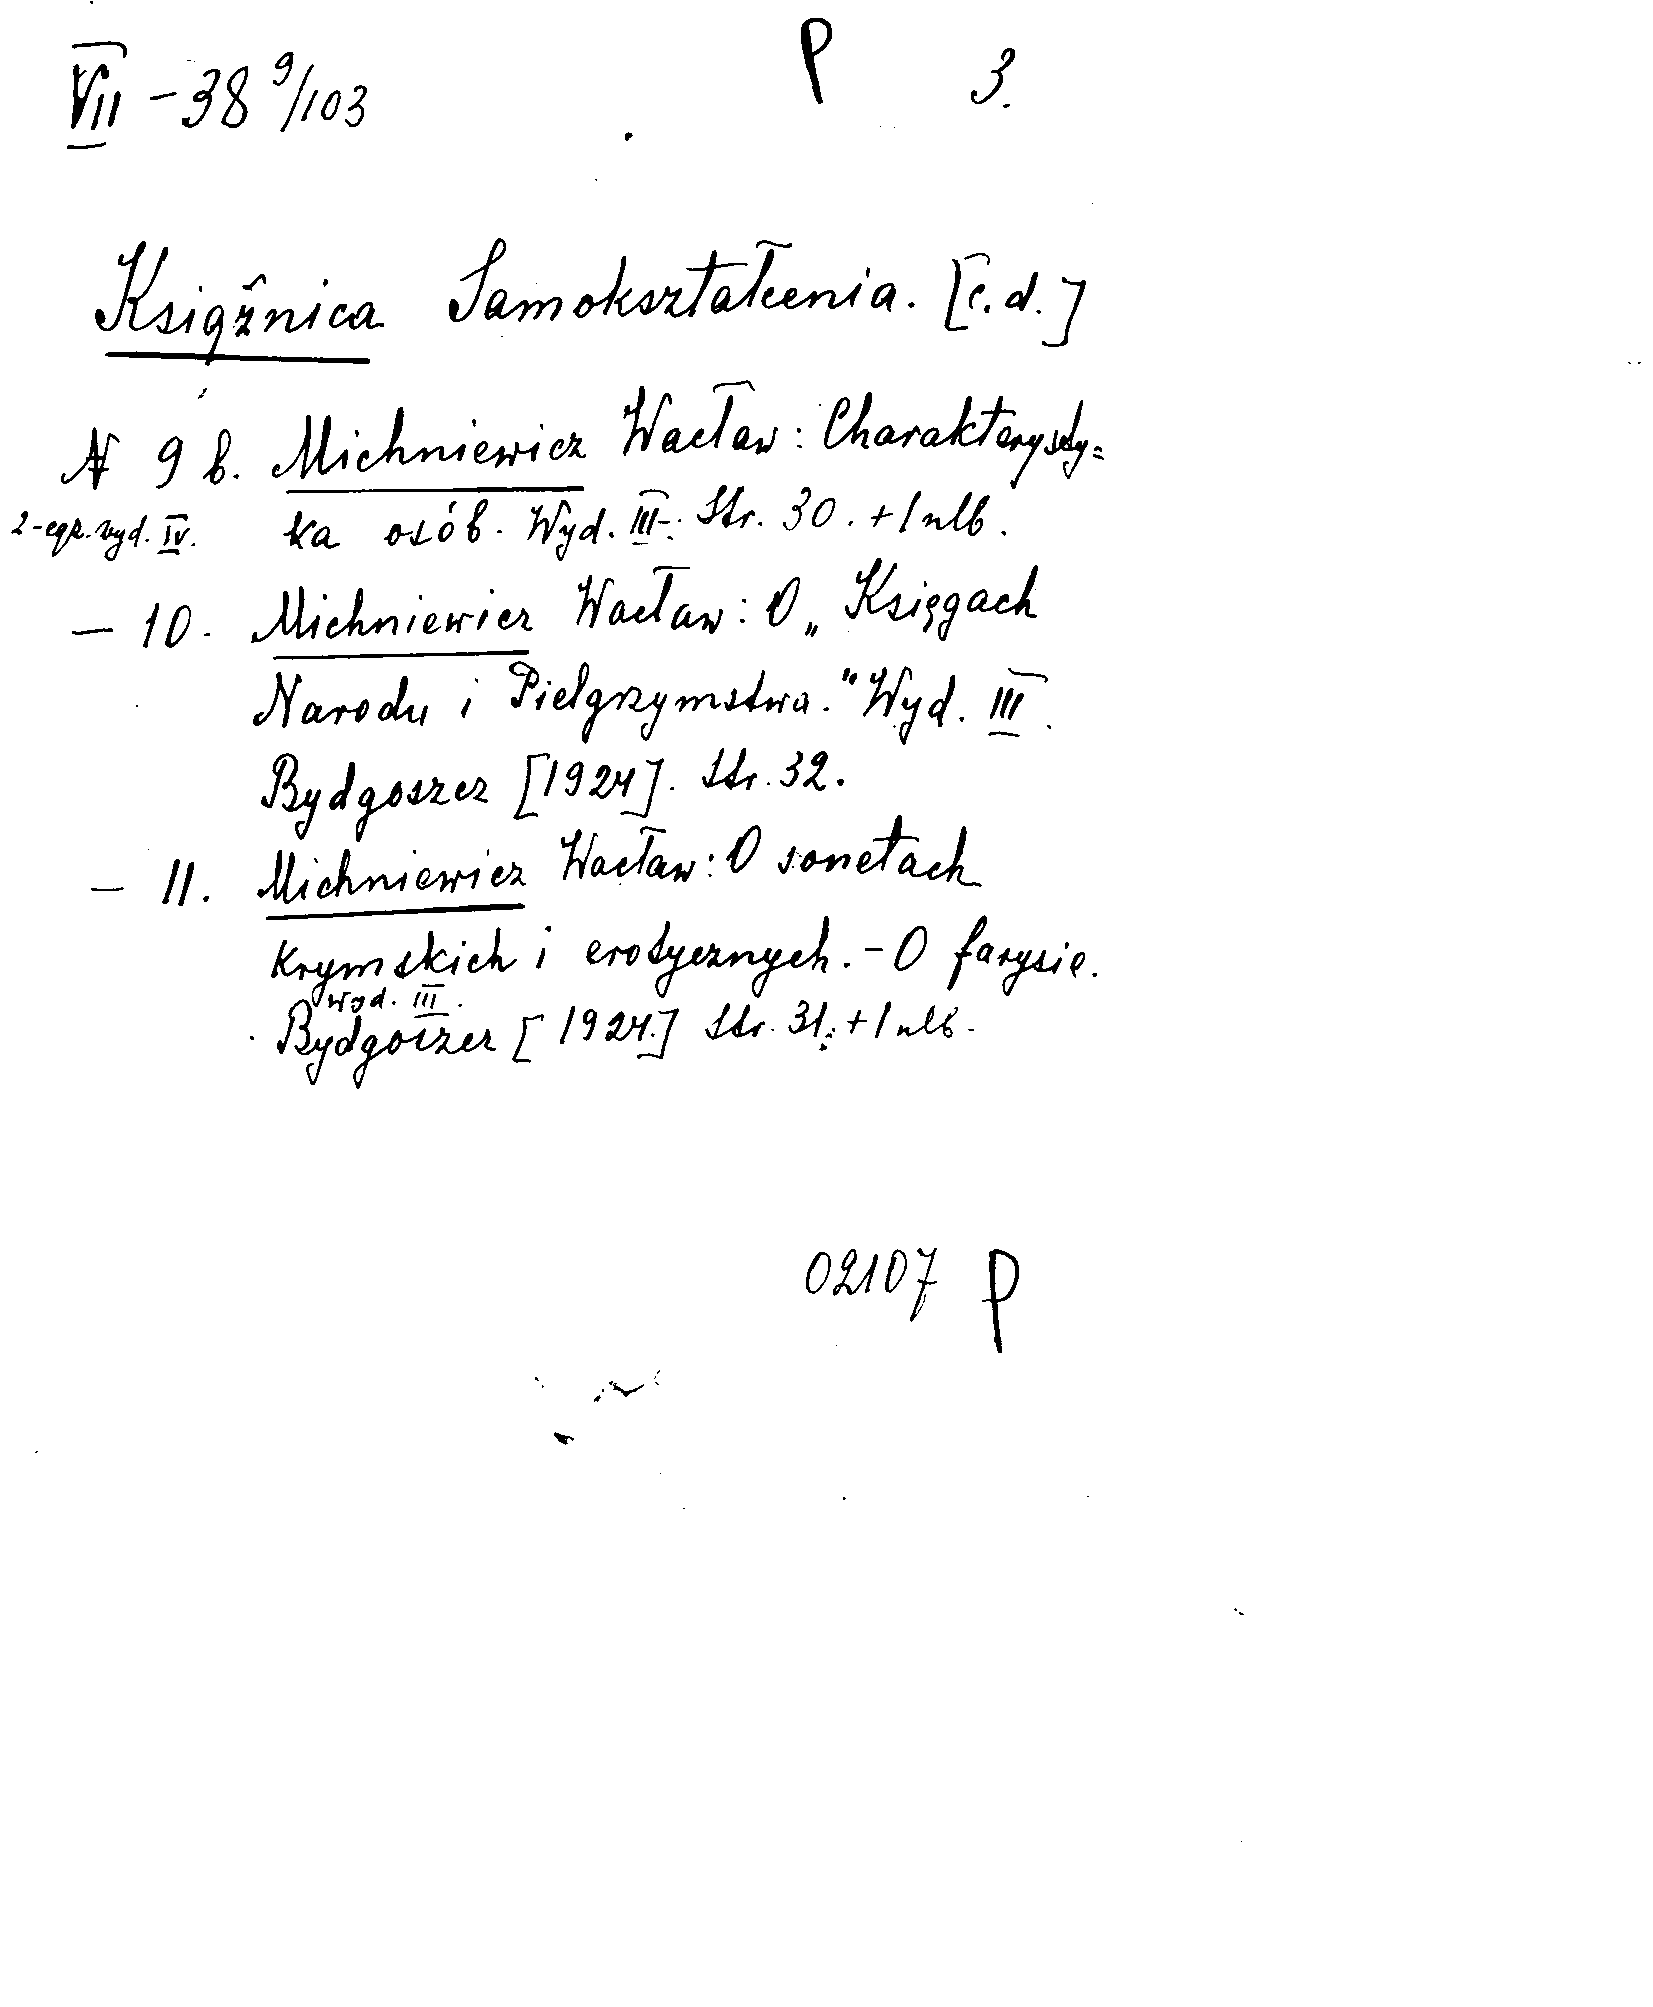 VII - 38 9/103 P 3.
Książnica Samokształcenia. [c.d.]
N 9 b. Michniewicz Wacław: Charakterysty=
2-egz. wyd. IV. ka osób. Wyd. III. Str. 30. + 1 nlb.
— 10. Michniewicz Wacław: O „Księgach
Narodu i Pielgrzymstwa." Wyd. III.
Bydgoszcz [1924]. Str. 32.
— 11. Michniewicz Wacław: O sonetach
krymskich i erotycznych. - O farysie.
wyd. III.
Bydgoszcz [1924.] Str. 31. + 1 nlb.
02107 P